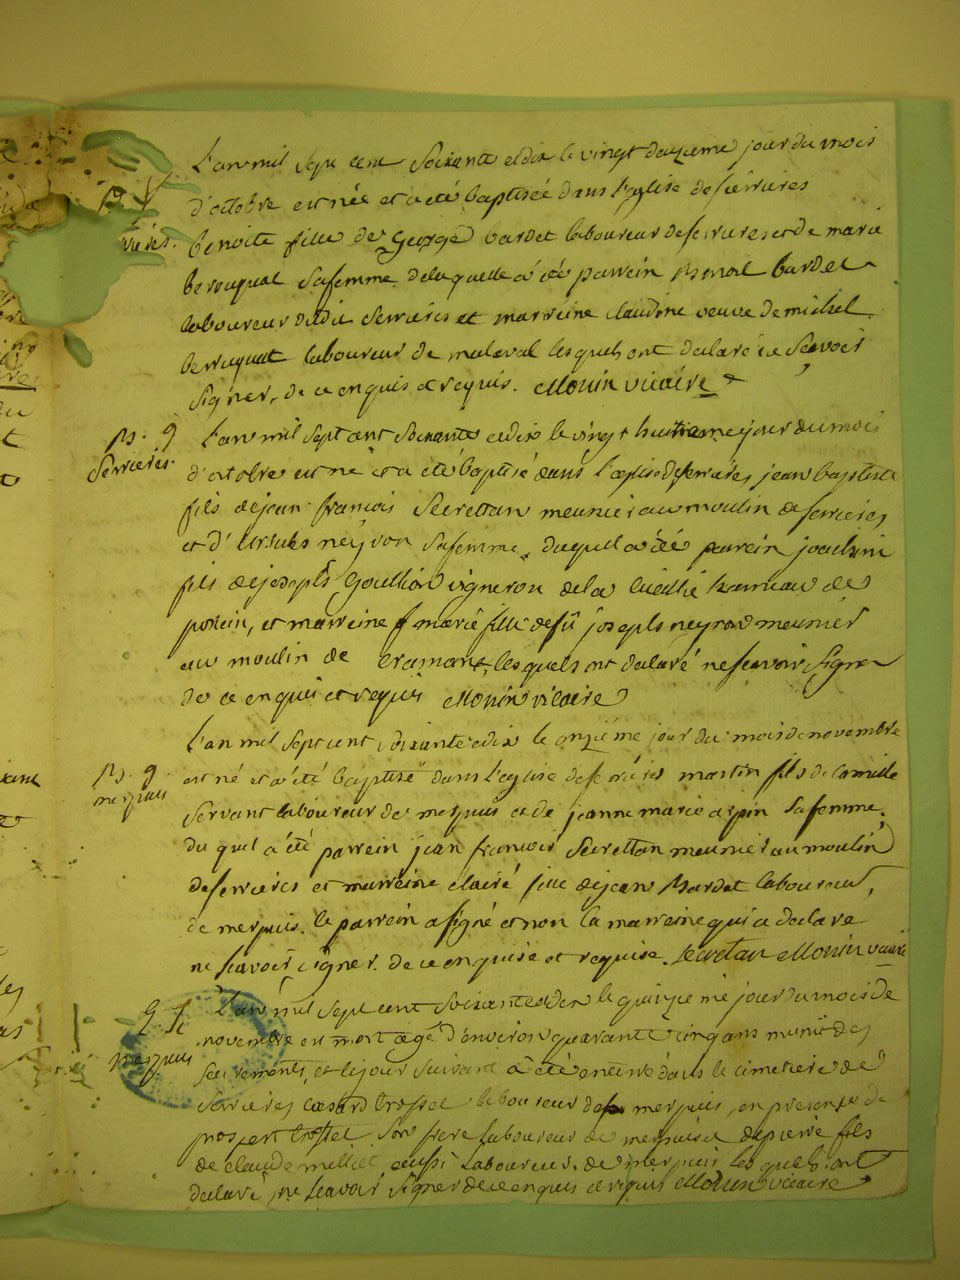 L'an mil sept cent soixante et dix le vingt deuxieme jour du mois
d'octobre est née et a été baptisée dans l'eglise de serrieres
benoite fille de George bardet laboureur de serrieres et de marie
berruquat sa femme de laquelle a été parrein bardet
laboureur dudit serrieres et marreine claudine veuve de michel
berruquat laboureur de malaval lesquels ont declaré ne sçavoir
signer, de ce enquis et requis. Monin vicaire
B. g
Serrieres
L'an mil sept cent soixante et dix le vingt huitieme jour du mois
d'octobre est né et a été baptisé dans l'eglise de serrieres jean baptiste
fils de jean françois Secrettan meunier au moulin de serrieres
et d'Ursules neyron sa femme, duquel a été parrein joachim
fils de joseph Goullion vigneron de la hameau de
et marreine marie fille de fû joseph neyron meunier
au moulin de lesquels ont declaré ne scavoir signer
de ce enquis et requis Monin vicaire
B. g.
merpuis
L'an mil sept cent soixante et dix le onzieme jour du mois de novembre
est né et a été baptisé dans l'eglise de serrieres martin fils de Camille
Servant laboureur de merpuis et de jeanne marie arpin sa femme,
du quel a été parrein jean françois Secrettan meunier au moulin
de serrieres et marreine claire fille de jean Bardet laboureur
de merpuis. le parrein a signé et non la marreine qui a declaré
ne scavoir signer de ce enquise et requise. Secretan Monin vicaire
merpuis
L'an mil sept cent soixante et dix le quinzieme jour du mois de
novembre est mort agé d'environ quarante cinq ans munit des
sacrements, et le jour suivant a été enterré dans le cimetiere de
serrieres cesard trosset laboureur de merpuis, en presence de
prosper trosset son frere laboureur de merpuis et de pierre fils
de claude melliet aussi laboureur de merpuis lesquels ont
declaré ne scavoir signer de ce enquis et requis Monin vicaire